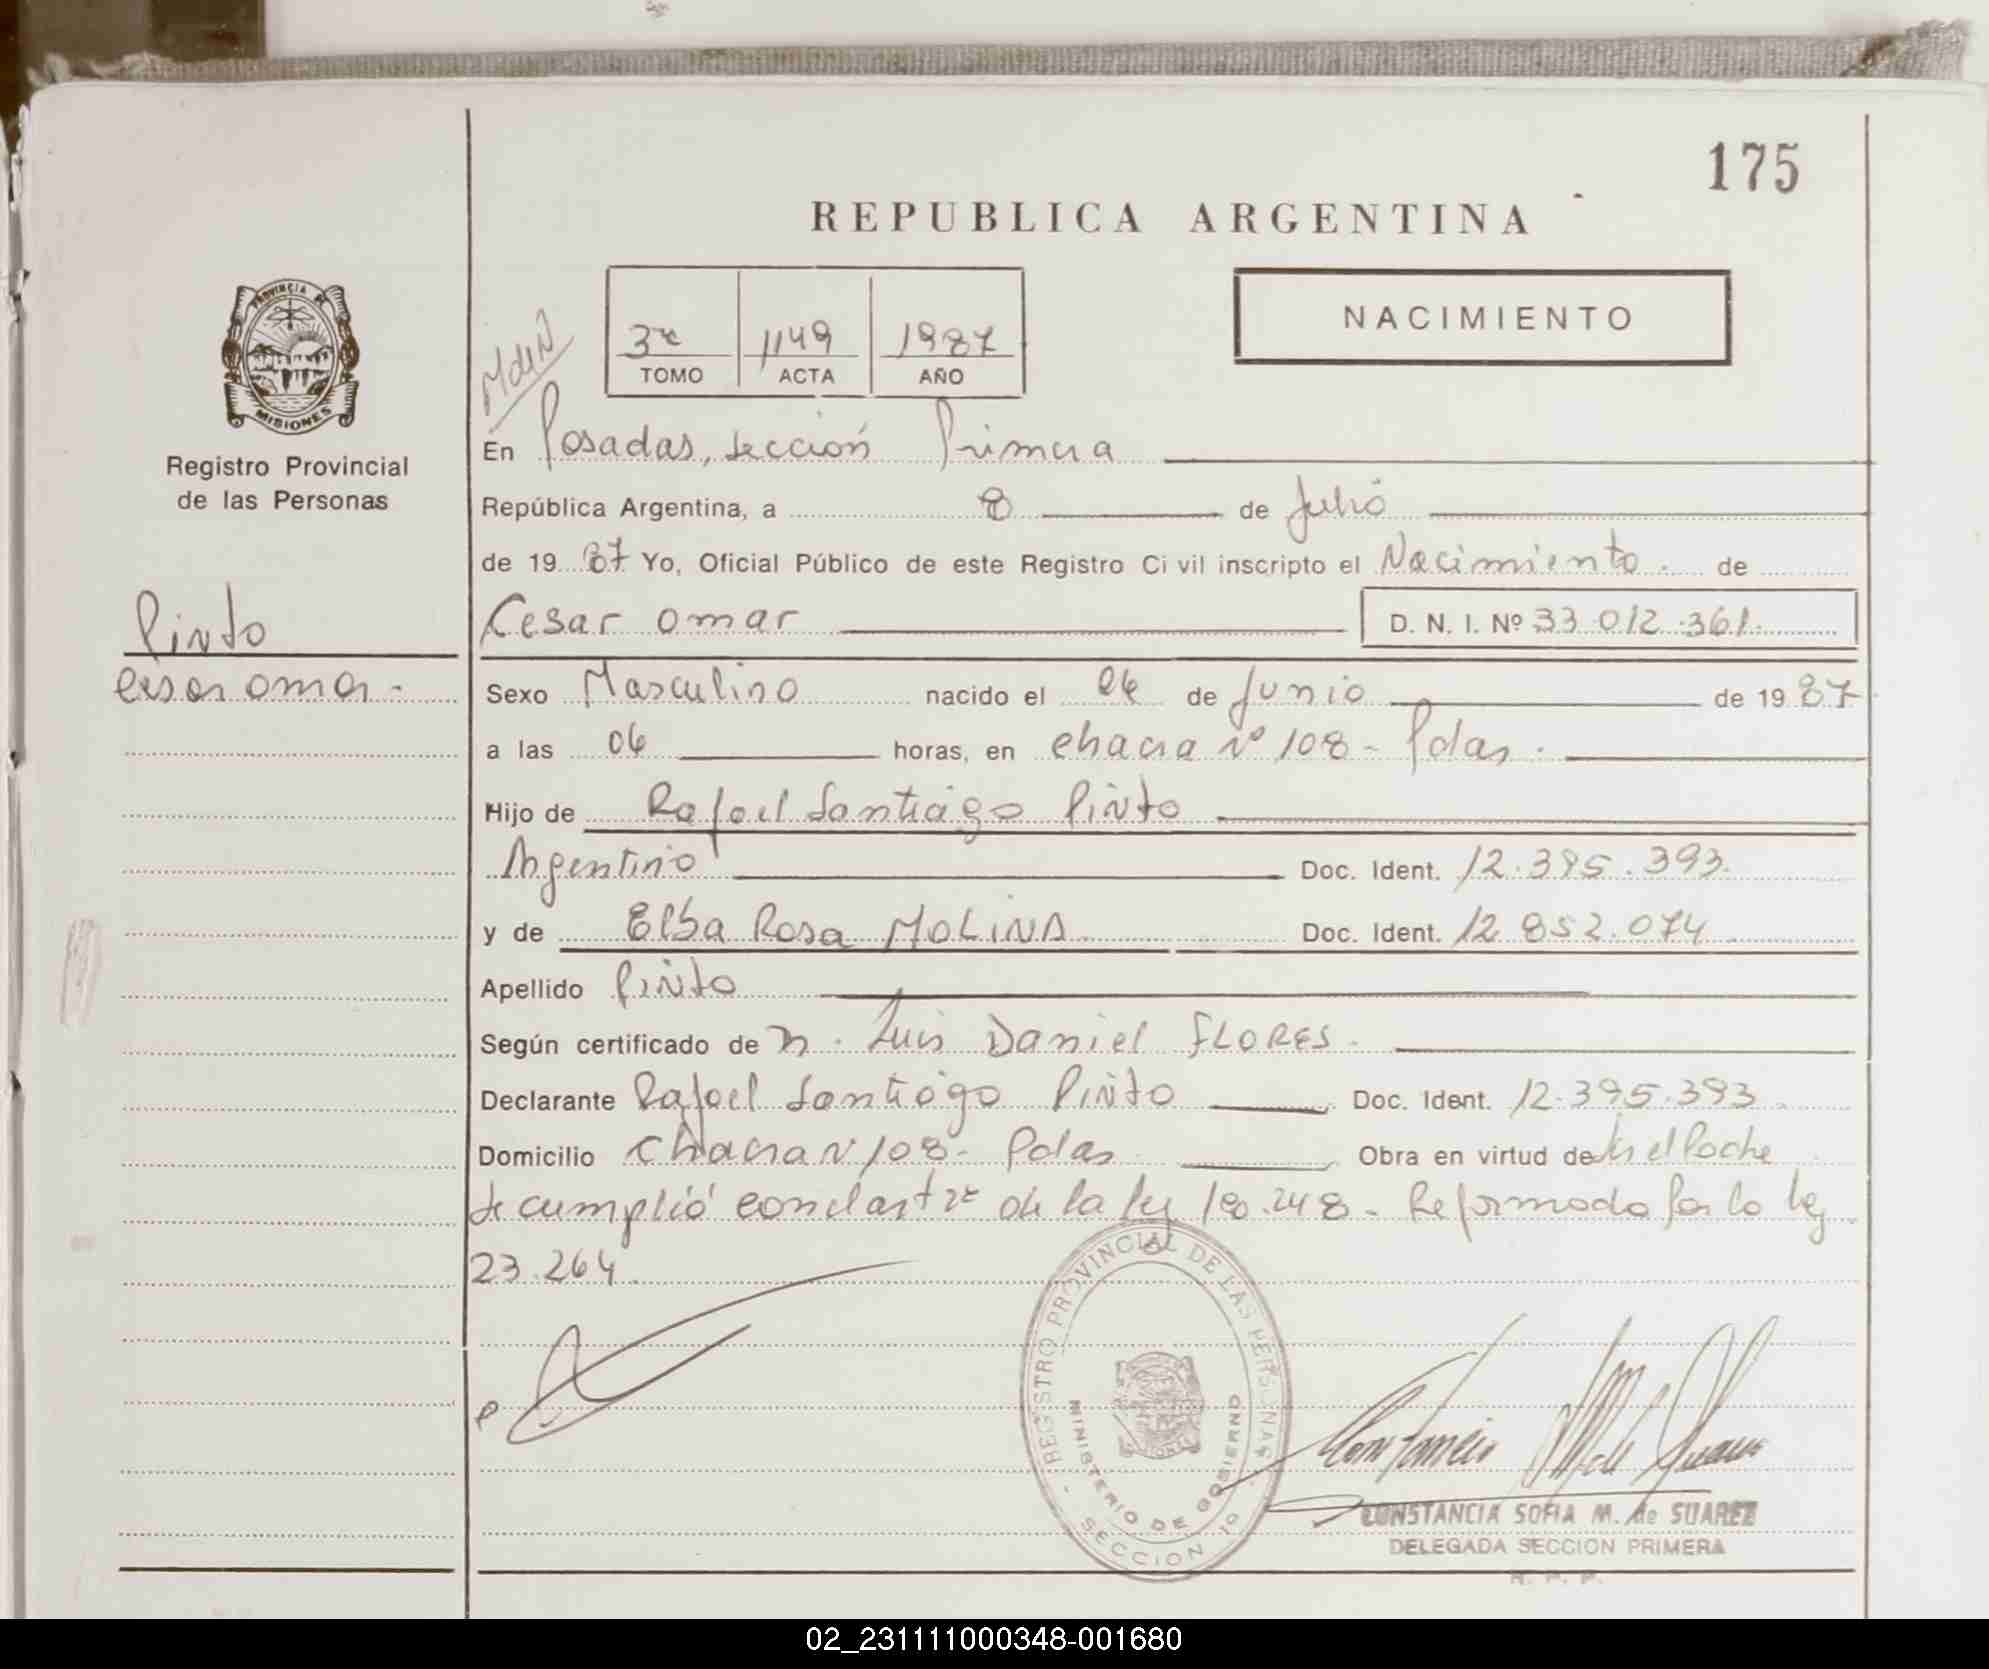 175
REPUBLICA ARGENTINA
PROVINCIA DE
MISIONES
Registro Provincial
de las Personas
NACIMIENTO
1149 1987
TOMO ACTA AÑO
En Posadas, Sección Primera
República Argentina, a 8 de Julio
de 19 87 Yo, Oficial Público de este Registro Civil inscripto el Nacimiento. de
Pinto
Cesar Omar D. N. I. Nº 33.012.361.
Cesar Omar.-
Sexo Masculino nacido el 06 de Junio de 19 87
a las 06 horas, en chacra Nº 108 - Pdas.
Hijo de Rafael Santiago Pinto
Argentino Doc. Ident. 12.395.393.
y de Elba Rosa MOLINA Doc. Ident. 12.852.074
Apellido Pinto
Según certificado de Luis Daniel FLORES.
Declarante Rafael Santiago Pinto Doc. Ident. 12.395.393
Domicilio Chacra Nº 108 - Pdas Obra en virtud de
Se cumplió con el art de la ley 18.248 - Reformada por la ley
23.264
REGISTRO PROVINCIAL DE LAS PERSONAS
MINISTERIO DE GOBIERNO
SECCION 1º
CONSTANCIA SOFIA M. de SUAREZ
DELEGADA SECCION PRIMERA
R. P. P.
02_231111000348-001680